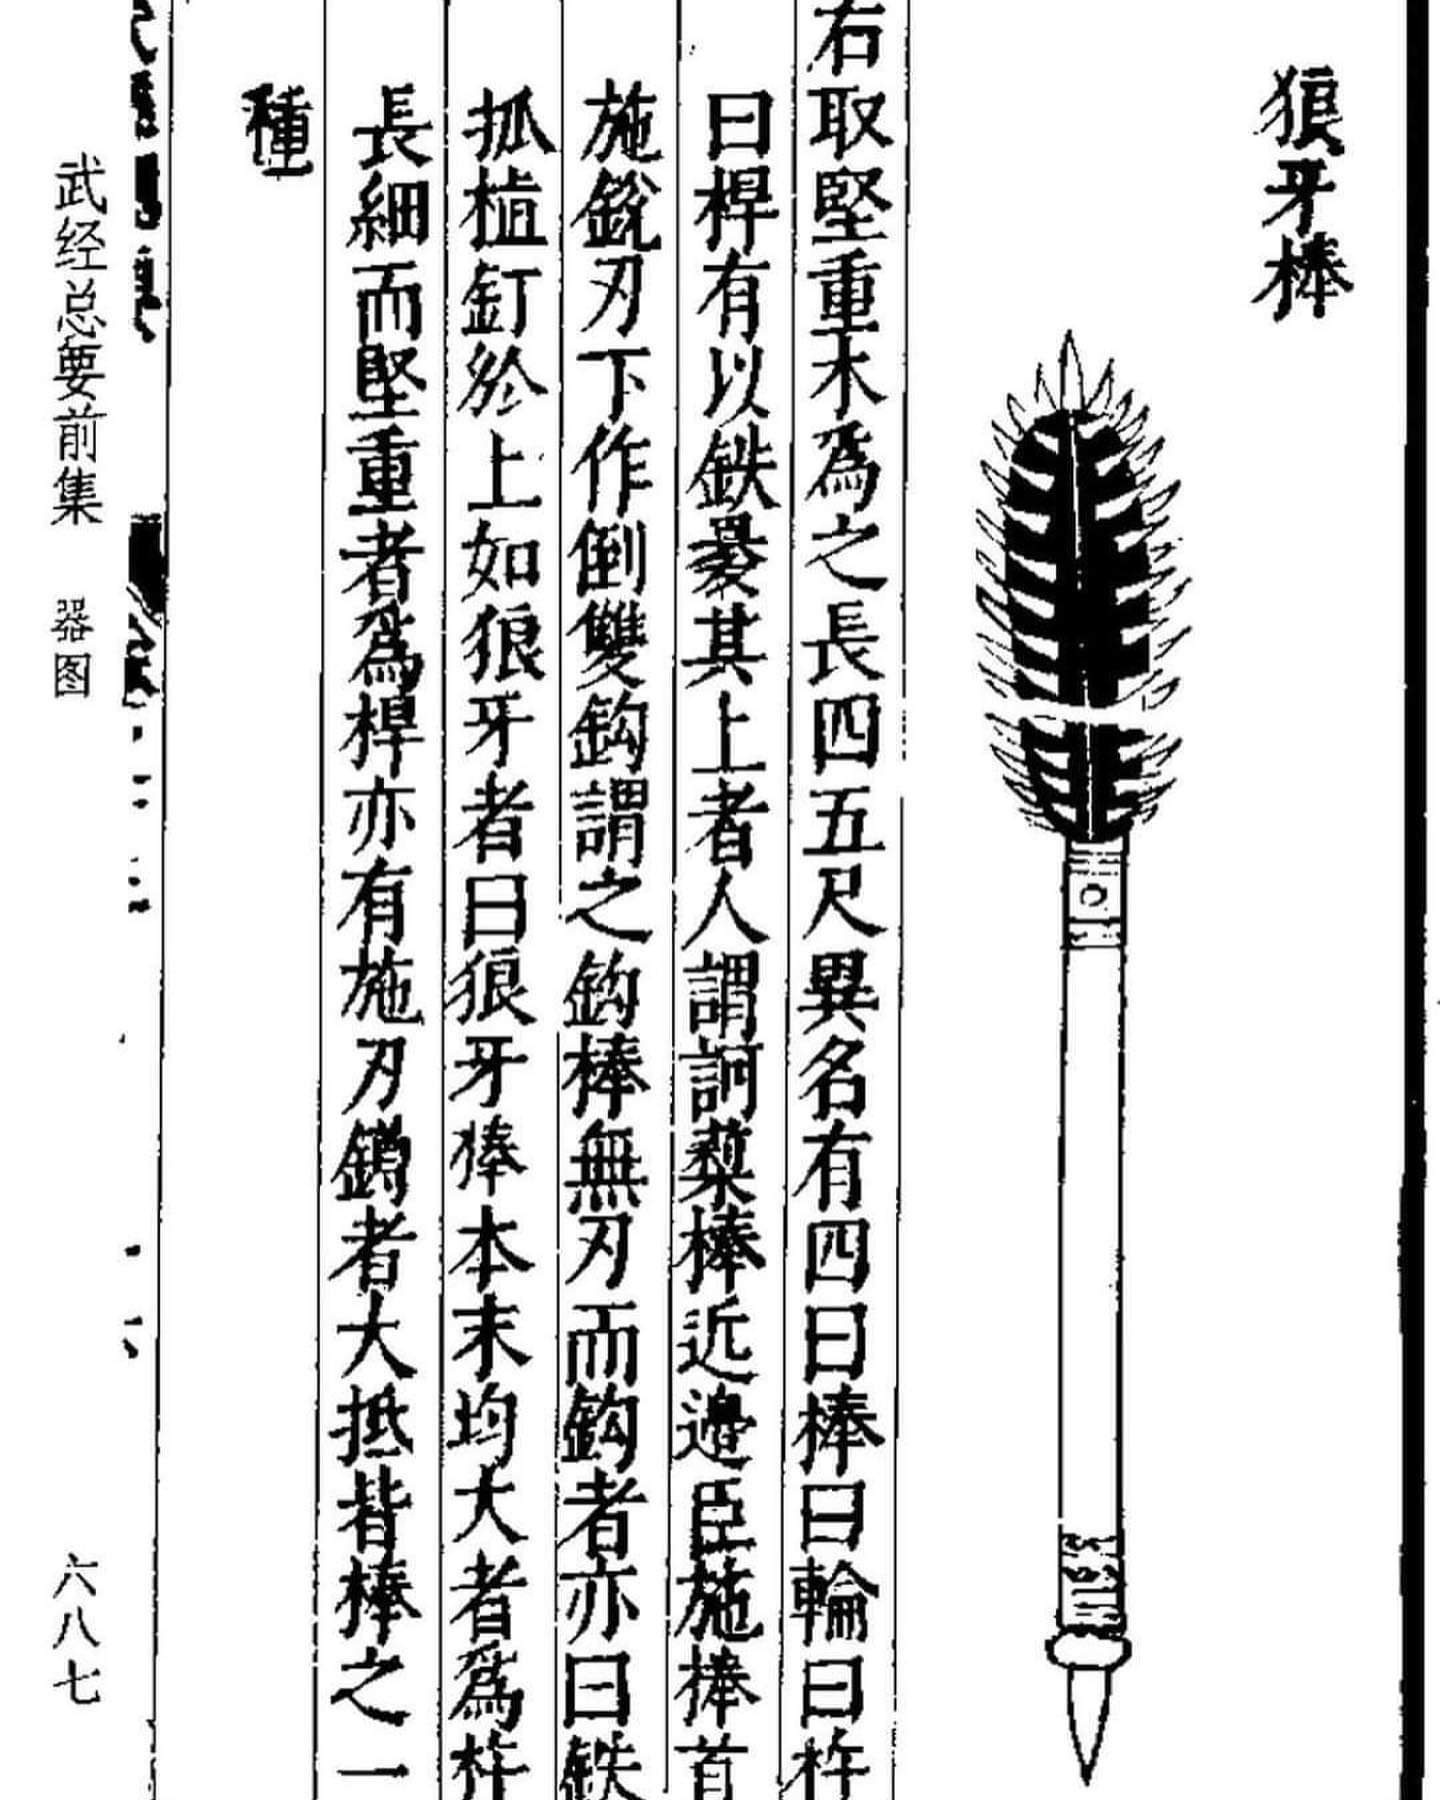 狼牙棒
右取堅重木為之長四五尺異名有四曰棒曰輪曰杵
曰桿有以鉄褁其上者人謂訶藜棒近邊臣施棒首
施銳刃下作倒雙鈎謂之鈎棒無刃而鈎者亦曰鉄
抓植釘於上如狼牙者曰狼牙棒本末均大者為杵
長細而堅重者為桿亦有施刃鐏者大抵皆棒之一
種
武经总要前集 器图
六八七